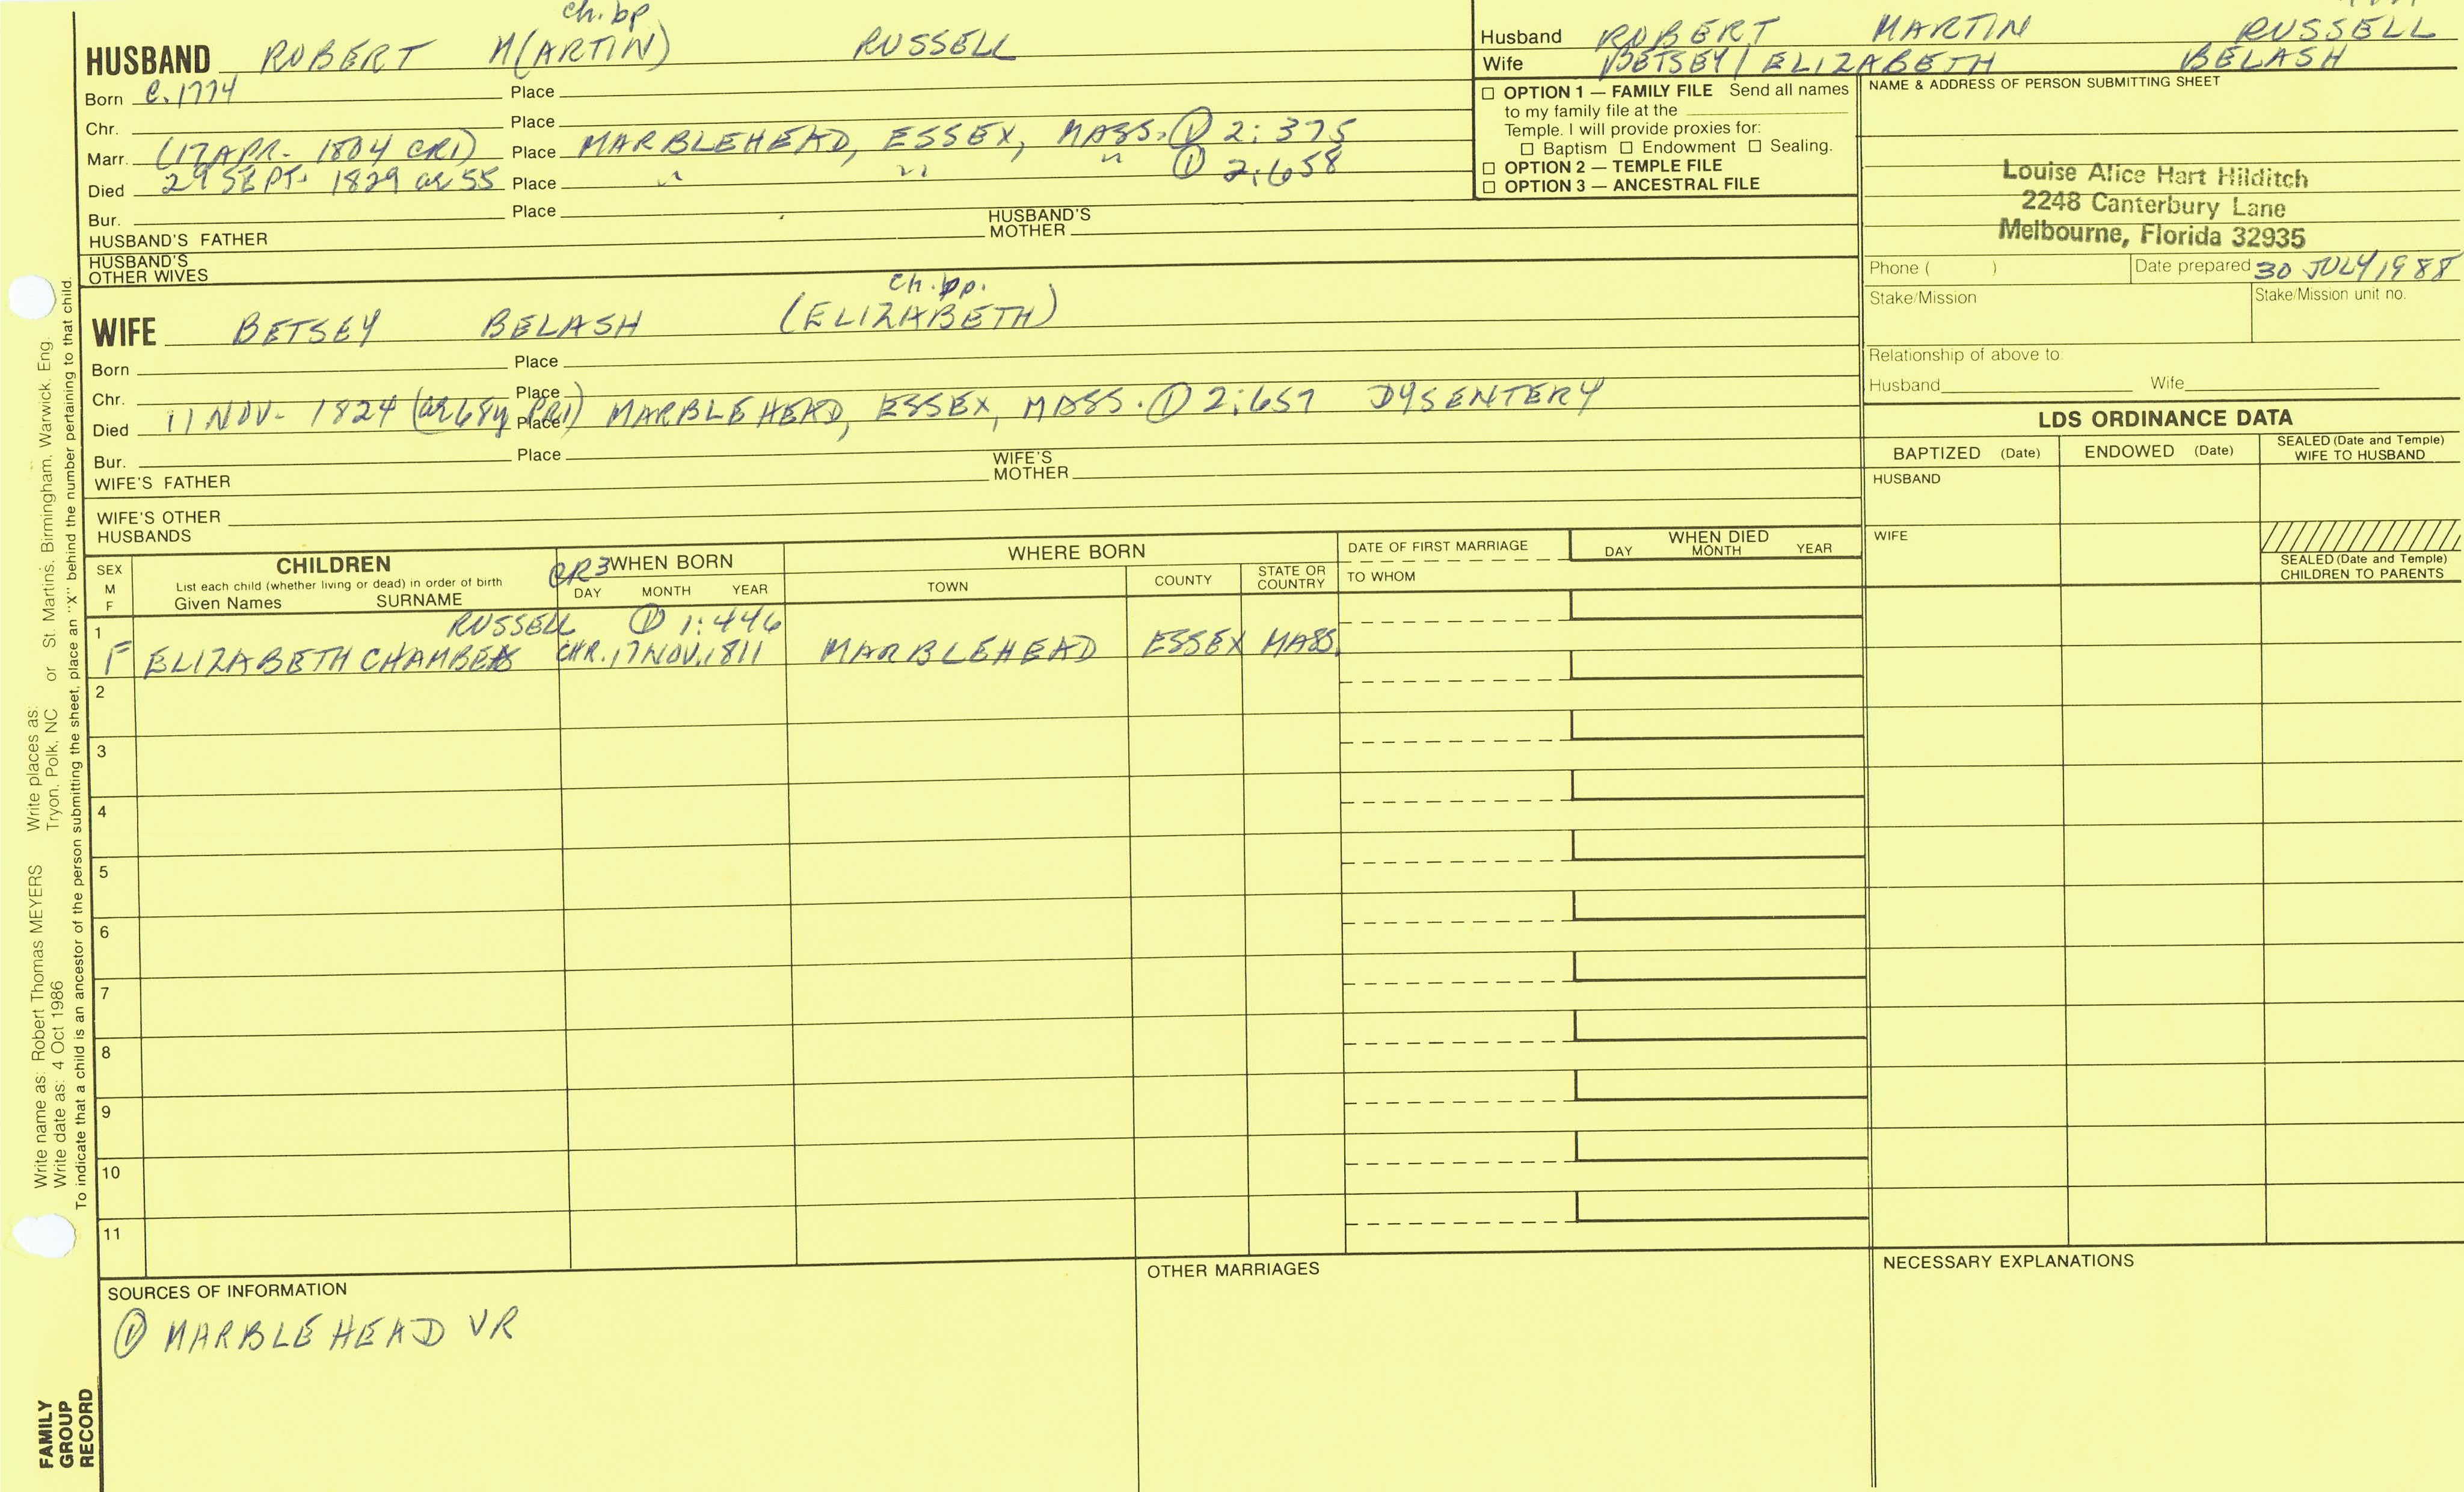 ch. bp
HUSBAND ROBERT M(ARTIN) RUSSELL
Born C. 1774 Place
Chr. Place
Marr. (17 APR. 1804 CR1) Place MARBLEHEAD, ESSEX, MASS. ① 2:375
Died 29 SEPT. 1829 ae 55 Place " " " ① 2:658
Bur. Place
HUSBAND'S FATHER HUSBAND'S MOTHER
HUSBAND'S OTHER WIVES
ch. bp.
WIFE BETSEY BELASH (ELIZABETH)
Born Place
Chr. Place
Died 11 NOV. 1824 (ae 68y PR1) Place MARBLEHEAD, ESSEX, MASS. ① 2:657 DYSENTERY
Bur. Place
WIFE'S FATHER WIFE'S MOTHER
WIFE'S OTHER HUSBANDS
Husband ROBERT MARTIN RUSSELL
Wife BETSEY/ELIZABETH BELASH
☐ OPTION 1 — FAMILY FILE Send all names
to my family file at the
Temple. I will provide proxies for:
☐ Baptism ☐ Endowment ☐ Sealing.
☐ OPTION 2 — TEMPLE FILE
☐ OPTION 3 — ANCESTRAL FILE
NAME & ADDRESS OF PERSON SUBMITTING SHEET
Louise Alice Hart Hilditch
2248 Canterbury Lane
Melbourne, Florida 32935
Phone ( ) Date prepared 30 JULY 1988
Stake/Mission Stake/Mission unit no.
Relationship of above to:
Husband Wife
LDS ORDINANCE DATA
BAPTIZED (Date) ENDOWED (Date) SEALED (Date and Temple) WIFE TO HUSBAND
HUSBAND
WIFE
SEALED (Date and Temple) CHILDREN TO PARENTS
SEX M F
CHILDREN
List each child (whether living or dead) in order of birth
Given Names SURNAME
CR3 WHEN BORN
DAY MONTH YEAR
WHERE BORN
TOWN COUNTY STATE OR COUNTRY
DATE OF FIRST MARRIAGE
TO WHOM
WHEN DIED
DAY MONTH YEAR
1 RUSSELL ① 1:446
F ELIZABETH CHAMBERS CHR. 17 NOV. 1811 MARBLEHEAD ESSEX MASS.
2
3
4
5
6
7
8
9
10
11
SOURCES OF INFORMATION
① MARBLEHEAD VR
OTHER MARRIAGES
NECESSARY EXPLANATIONS
Write name as: Robert Thomas MEYERS Write places as:
Write date as: 4 Oct 1986 Tryon, Polk, NC or St. Martins, Birmingham, Warwick, Eng.
To indicate that a child is an ancestor of the person submitting the sheet, place an "X" behind the number pertaining to that child.
FAMILY
GROUP
RECORD